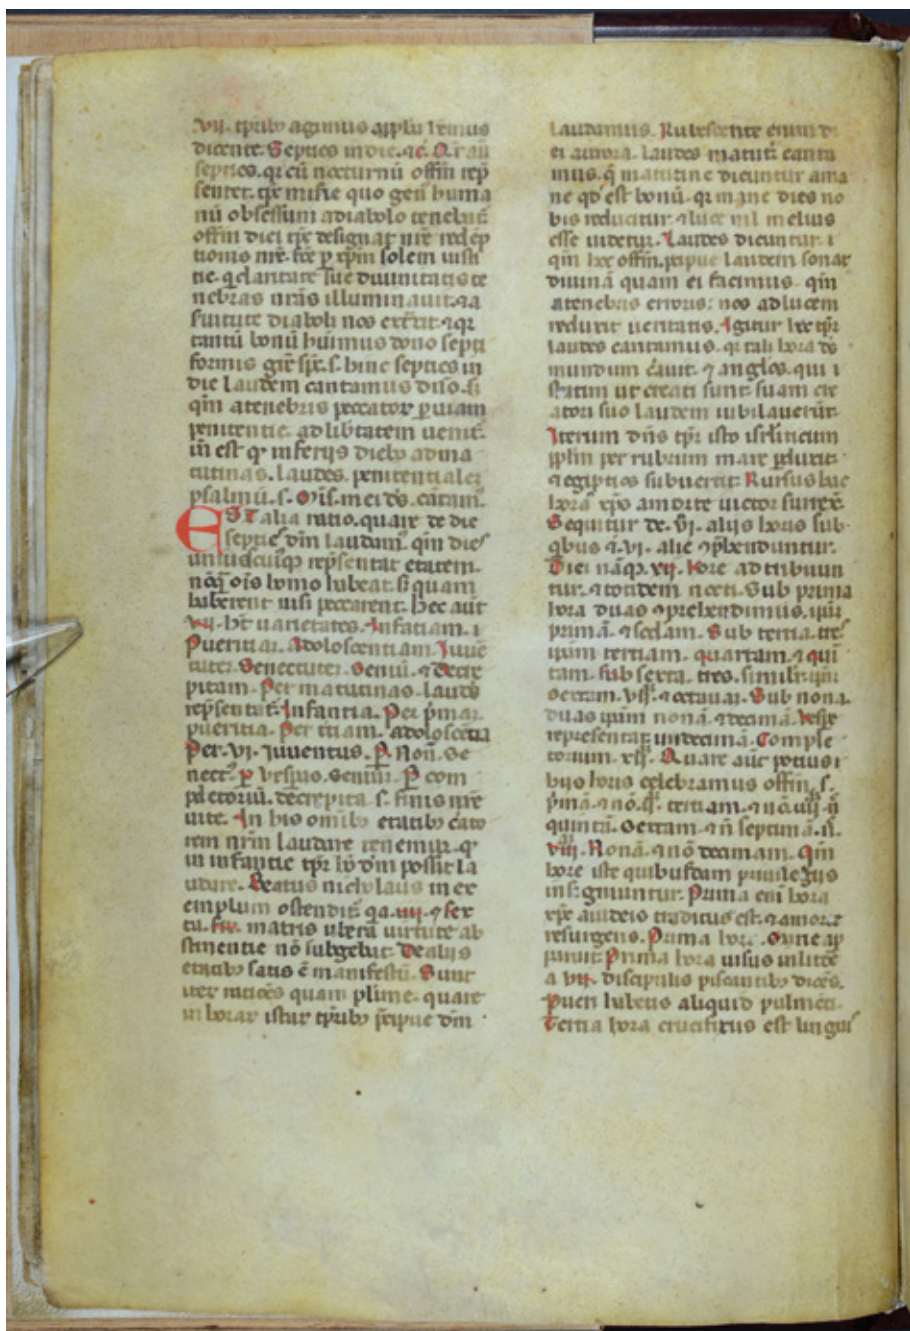 vij. tp̃ribꝫ agimus
dicente. Septies in die. ⁊c̃.
septies. qꝛ cũ nocturnũ offm̃ rep̃
sentet. tp̃r miſie quo gen̾ huma
nũ obsessum a diabolo tenebat̃
offm̃ diei tp̃r designat nr̃e redēp
tionis nr̃e. p xp̃m solem iusti
tie. q claritate sue diuinitatis te
nebras nr̃as illuminauit. ⁊ a
ſuitute diaboli nos
tantũ bonũ huimus dono septi
formis gr̃e sp̃c. s. hinc septies in
die laudem cantamus
qm̃ a tenebris peccator̃ p uiam
penitentie. ad lib̾tatem
est qꝫ in ferijs diebꝫ ad ma
tutinas. laudes. penitentialeʒ
psalmũ. s. mei ds̃. cãtam̾
Est ⁊ alia ratio. quare de die
septies dm̃ laudam̾ qm̃ dies
unuscuiꝫqꝫ rep̃sentat etatem.
oĩs homo habeat. si quam
haberent nisi peccarent. Hec aũt
vij. hñt uarietates. Infãtiam. i
Pueritiaʒ. Adoloscentiam. Iuuẽ
tuteʒ. Senectuteʒ. Seniũ. ⁊ decre
pitam. Per matutinas laudes
rep̃sentat̃ Infantia. Per p̃mam
pueritia. Per t̃tiam. adoloscẽtia
Per. vi. Iuuentus. P. Nonã. Se
nect̾. P. vesp̃as. Seniũ. P com
pletoriũ. decrepita. s. finis nr̃e
uite. In his omĩbꝫ etatibꝫ c̾ato
rem nr̃m laudare tenemur. qꝫ
in infantie tp̃r dm̃ possit la
udare. Beatus nicholaus in ex
emplum ostendit̃ ⁊ sex
ta. fer. matris ubera uirtute ab
stinentie nõ sugebat. De alijs
etatibꝫ satis ẽ manifestũ. Sunt
iter rationes quam plĩme. quare
in horaʒ istaʒ tp̃ribꝫ p̃cipue dm̃
laudamus. Rubescente enim di
ei aurora. laudes matut̃ canta
mus. q̃ matutine dicuntur a ma
ne qd̾ est bonũ. qꝛ mane dies no
bis reducitur ⁊ luce nil melius
esse uidetur. Laudes dicuntur. i
qm̃ hec offm̃. p̃cipue laudem sonat
diuinã quam ei facimus. qm̃
a tenebris erroris: nos ad lucem
reduxit ueritatis. Igitur hec tp̃r
laudes cantamus. qꝛ tali hora ds̃
mundum c̾auit. ⁊ anglos. qui i
statim ut creati sunt. suam cre
atori suo laudem iubilauerũt.
Iterum dñs tp̃r isto isrliticum
pplm̃ per rubrum mare p̾duxit.
⁊ egiptios subuertit. Rursus hac
horã xp̃s a morte uictor surrex̾.
Sequitur de. vi. alijs horis sub
qbus q̃. vi. alie 9p̃hendũtur.
Diei nãqꝫ. xij. hore ad tribuun
tur. ⁊ totidem nocti. Sub prima
hora duas 9prehendimus.
primã. ⁊ secdam. Sub tertia. tres
ip̃am tertiam. quartam. ⁊ quĩ
tam. sub sexta. tres. simil̾r. ip̃ã
sextam. vij. ⁊ octauaʒ. Sub nona.
duas ip̃am nonã ⁊ decimã. vesp̃e
representat undecimã. Comple
torium. xij. Quare aũt potius i
hijs horis celebramus offm̃. s.
p̾mã. ⁊ nõ. ij. tertiam. ⁊ nõ. iiij.
quintã. Sextam. ⁊ ñ septimã. ñ
viij. Nonã. ⁊ nõ decimam. Qm̃
hore iste quibusdam priuilegijs
insigniuntur. Prima eni hora
xp̃c iudeis traditus est. ⁊ a morte
resurgens. Prima hora. Marie ap
paruit. Prima hora uisus in litoẽ
a vij. discipulis piscantibꝫ dicẽs.
Pueri habetis aliquid pulmẽti.
Tertia hora crucifixus est linguis